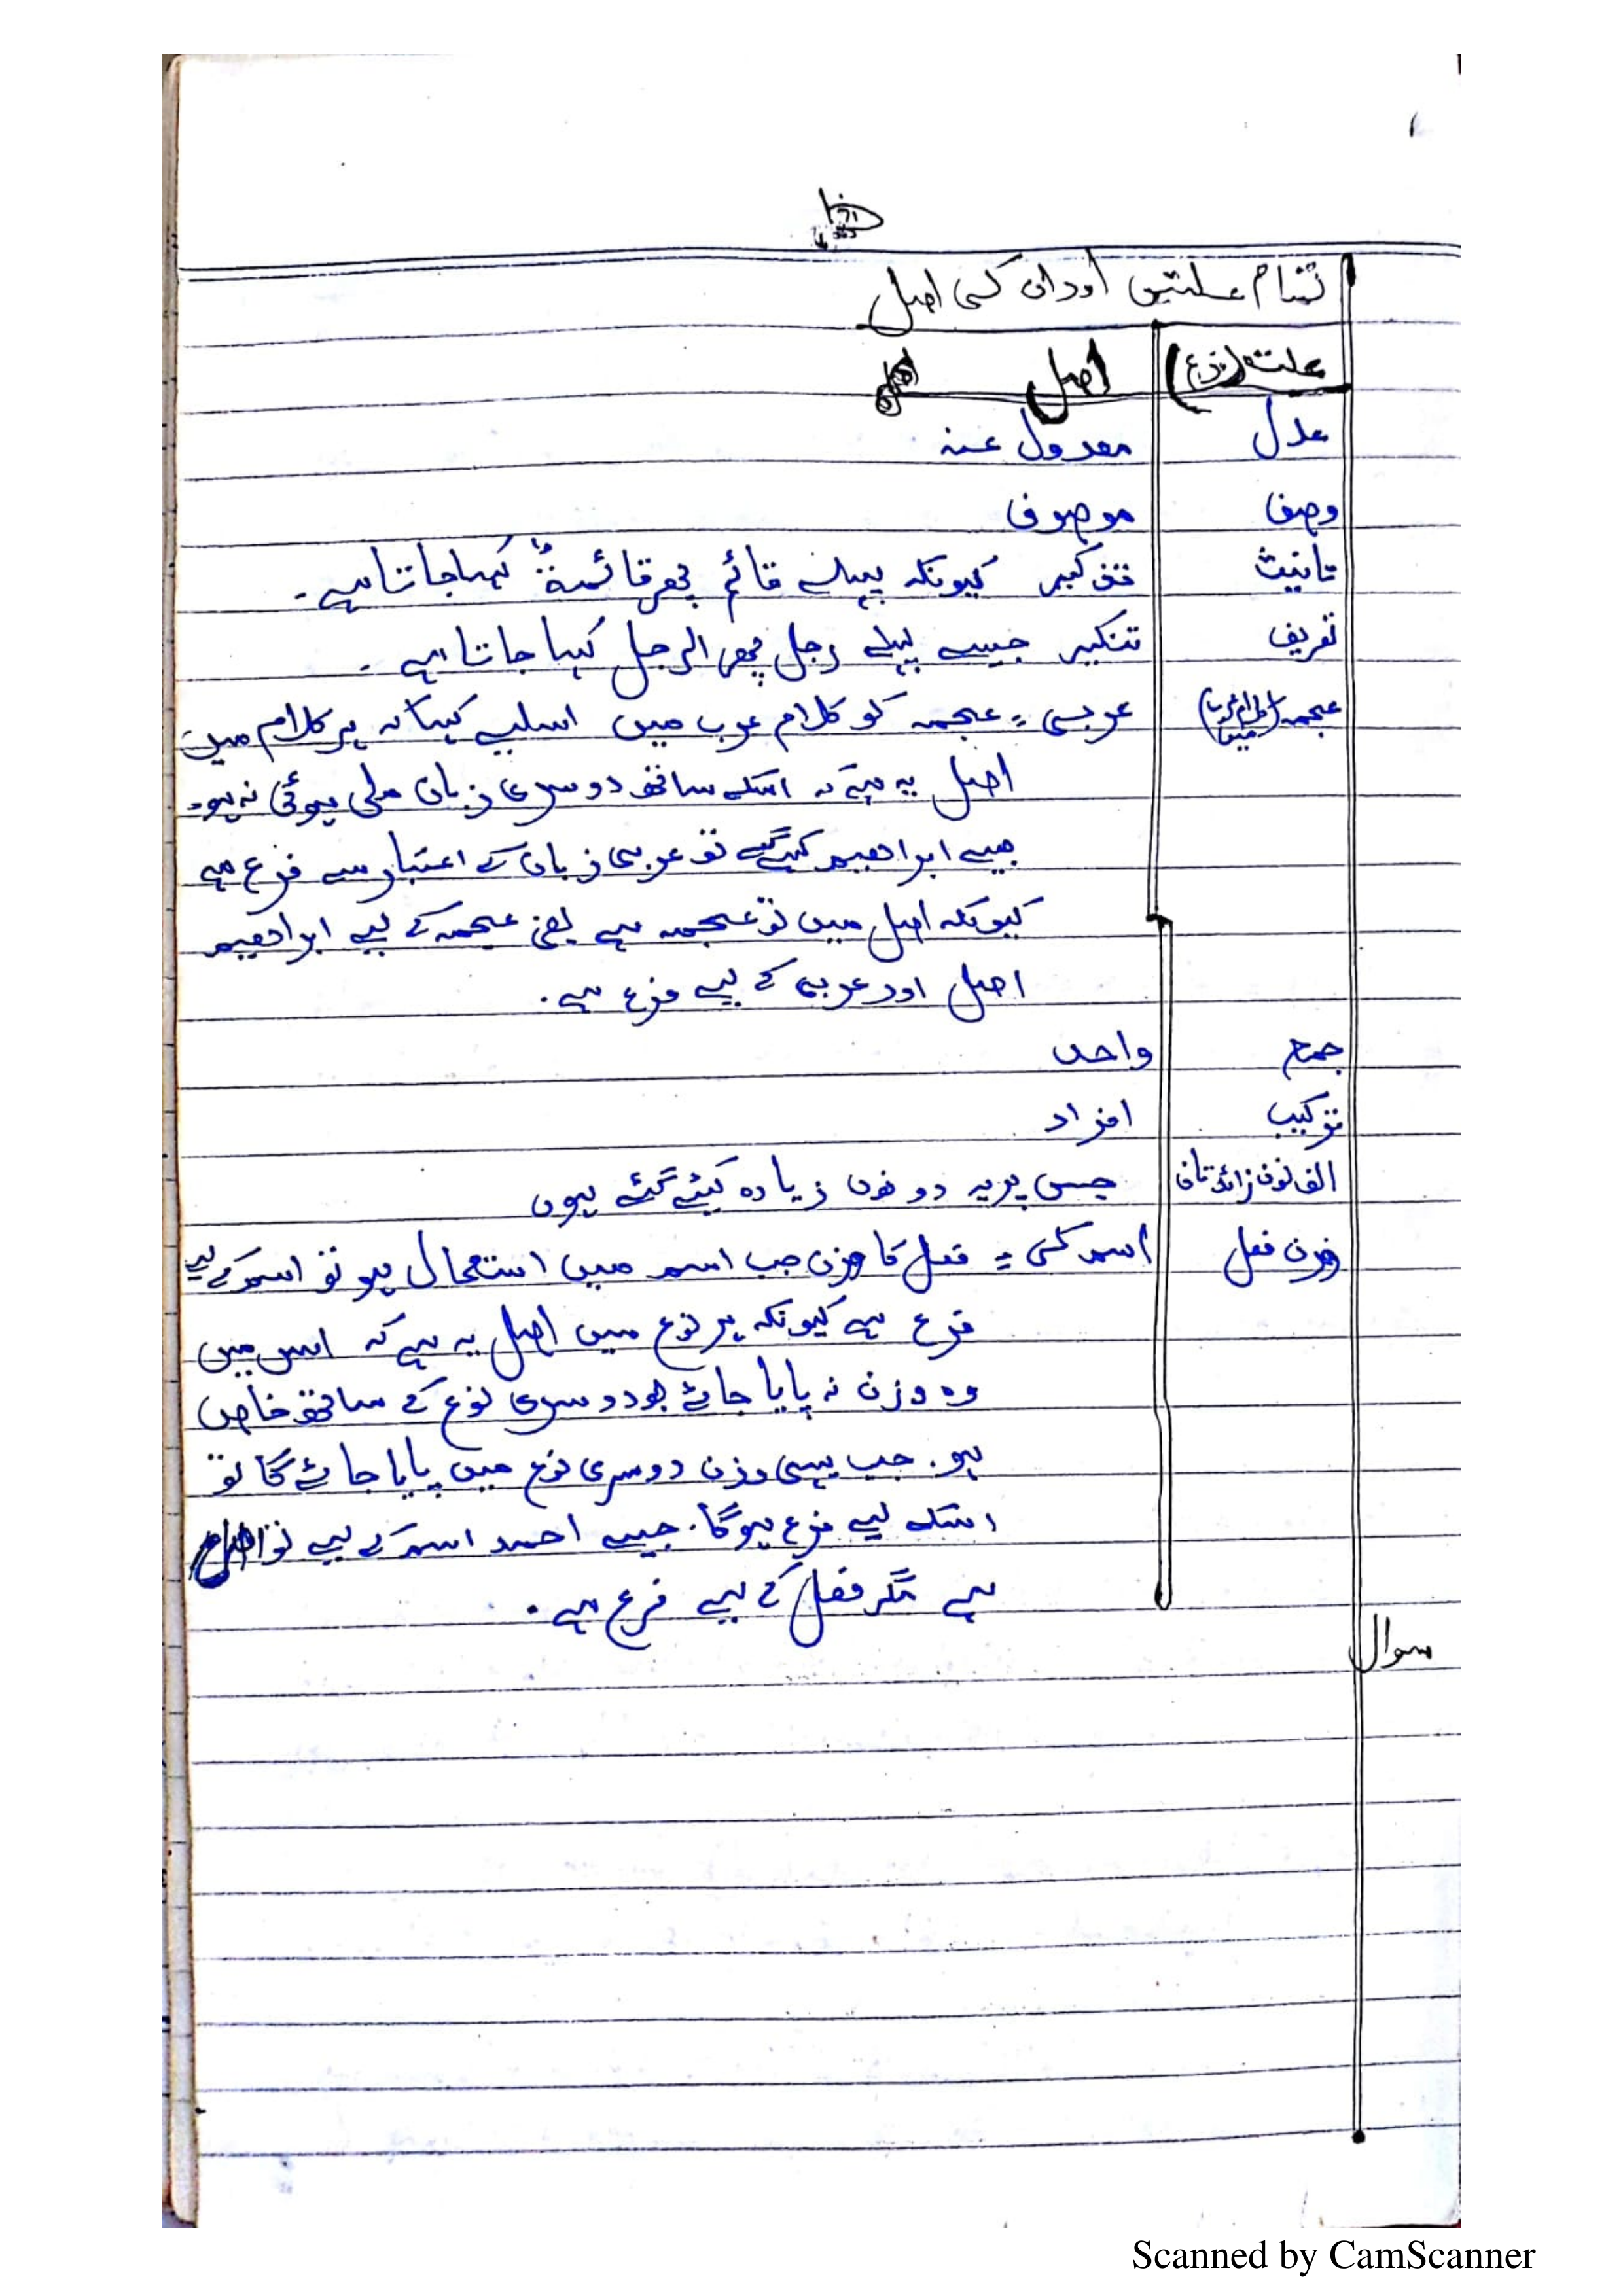 تمام علتیں اور ان کی اصل
علت (فرع) اصل
عدل معدول عنہ
وصف موصوف
تانیث تذکیر کیونکہ پہلے قائم پھر قائمۃ کہا جاتا ہے۔
تعریف تنکیر جیسے پہلے رجل پھر الرجل کہا جاتا ہے۔
عجمہ عربی = عجمہ کو کلام عرب میں اسلیے کہا کہ ہر کلام میں
اصل یہ ہے کہ اسکے ساتھ دوسری زبان ملی ہوئی نہ ہو۔
جیسے ابراھیم کہیں گے تو عربی زبان کے اعتبار سے فرع ہے
کیونکہ اصل میں تو عجمہ ہے یعنی عجمہ کے لیے ابراھیم
اصل اور عربی کے لیے فرع ہے۔
جمع واحد
ترکیب افراد
الف نون زائدتان جس پر یہ دونوں زیادہ کیئے گئے ہوں
وزن فعل اسم کی = فعل کا وزن جب اسم میں استعمال ہو تو اسم کے لیے
فرع ہے کیونکہ ہر نوع میں اصل یہ ہے کہ اس میں
وہ وزن نہ پایا جائے جو دوسری نوع کے ساتھ خاص
ہو۔ جب یہی وزن دوسری نوع میں پایا جائے گا تو
اسکے لیے فرع ہوگا۔ جیسے احمد اسم کے لیے تو
ہے مگر فعل کے لیے فرع ہے۔
سوال
Scanned by CamScanner